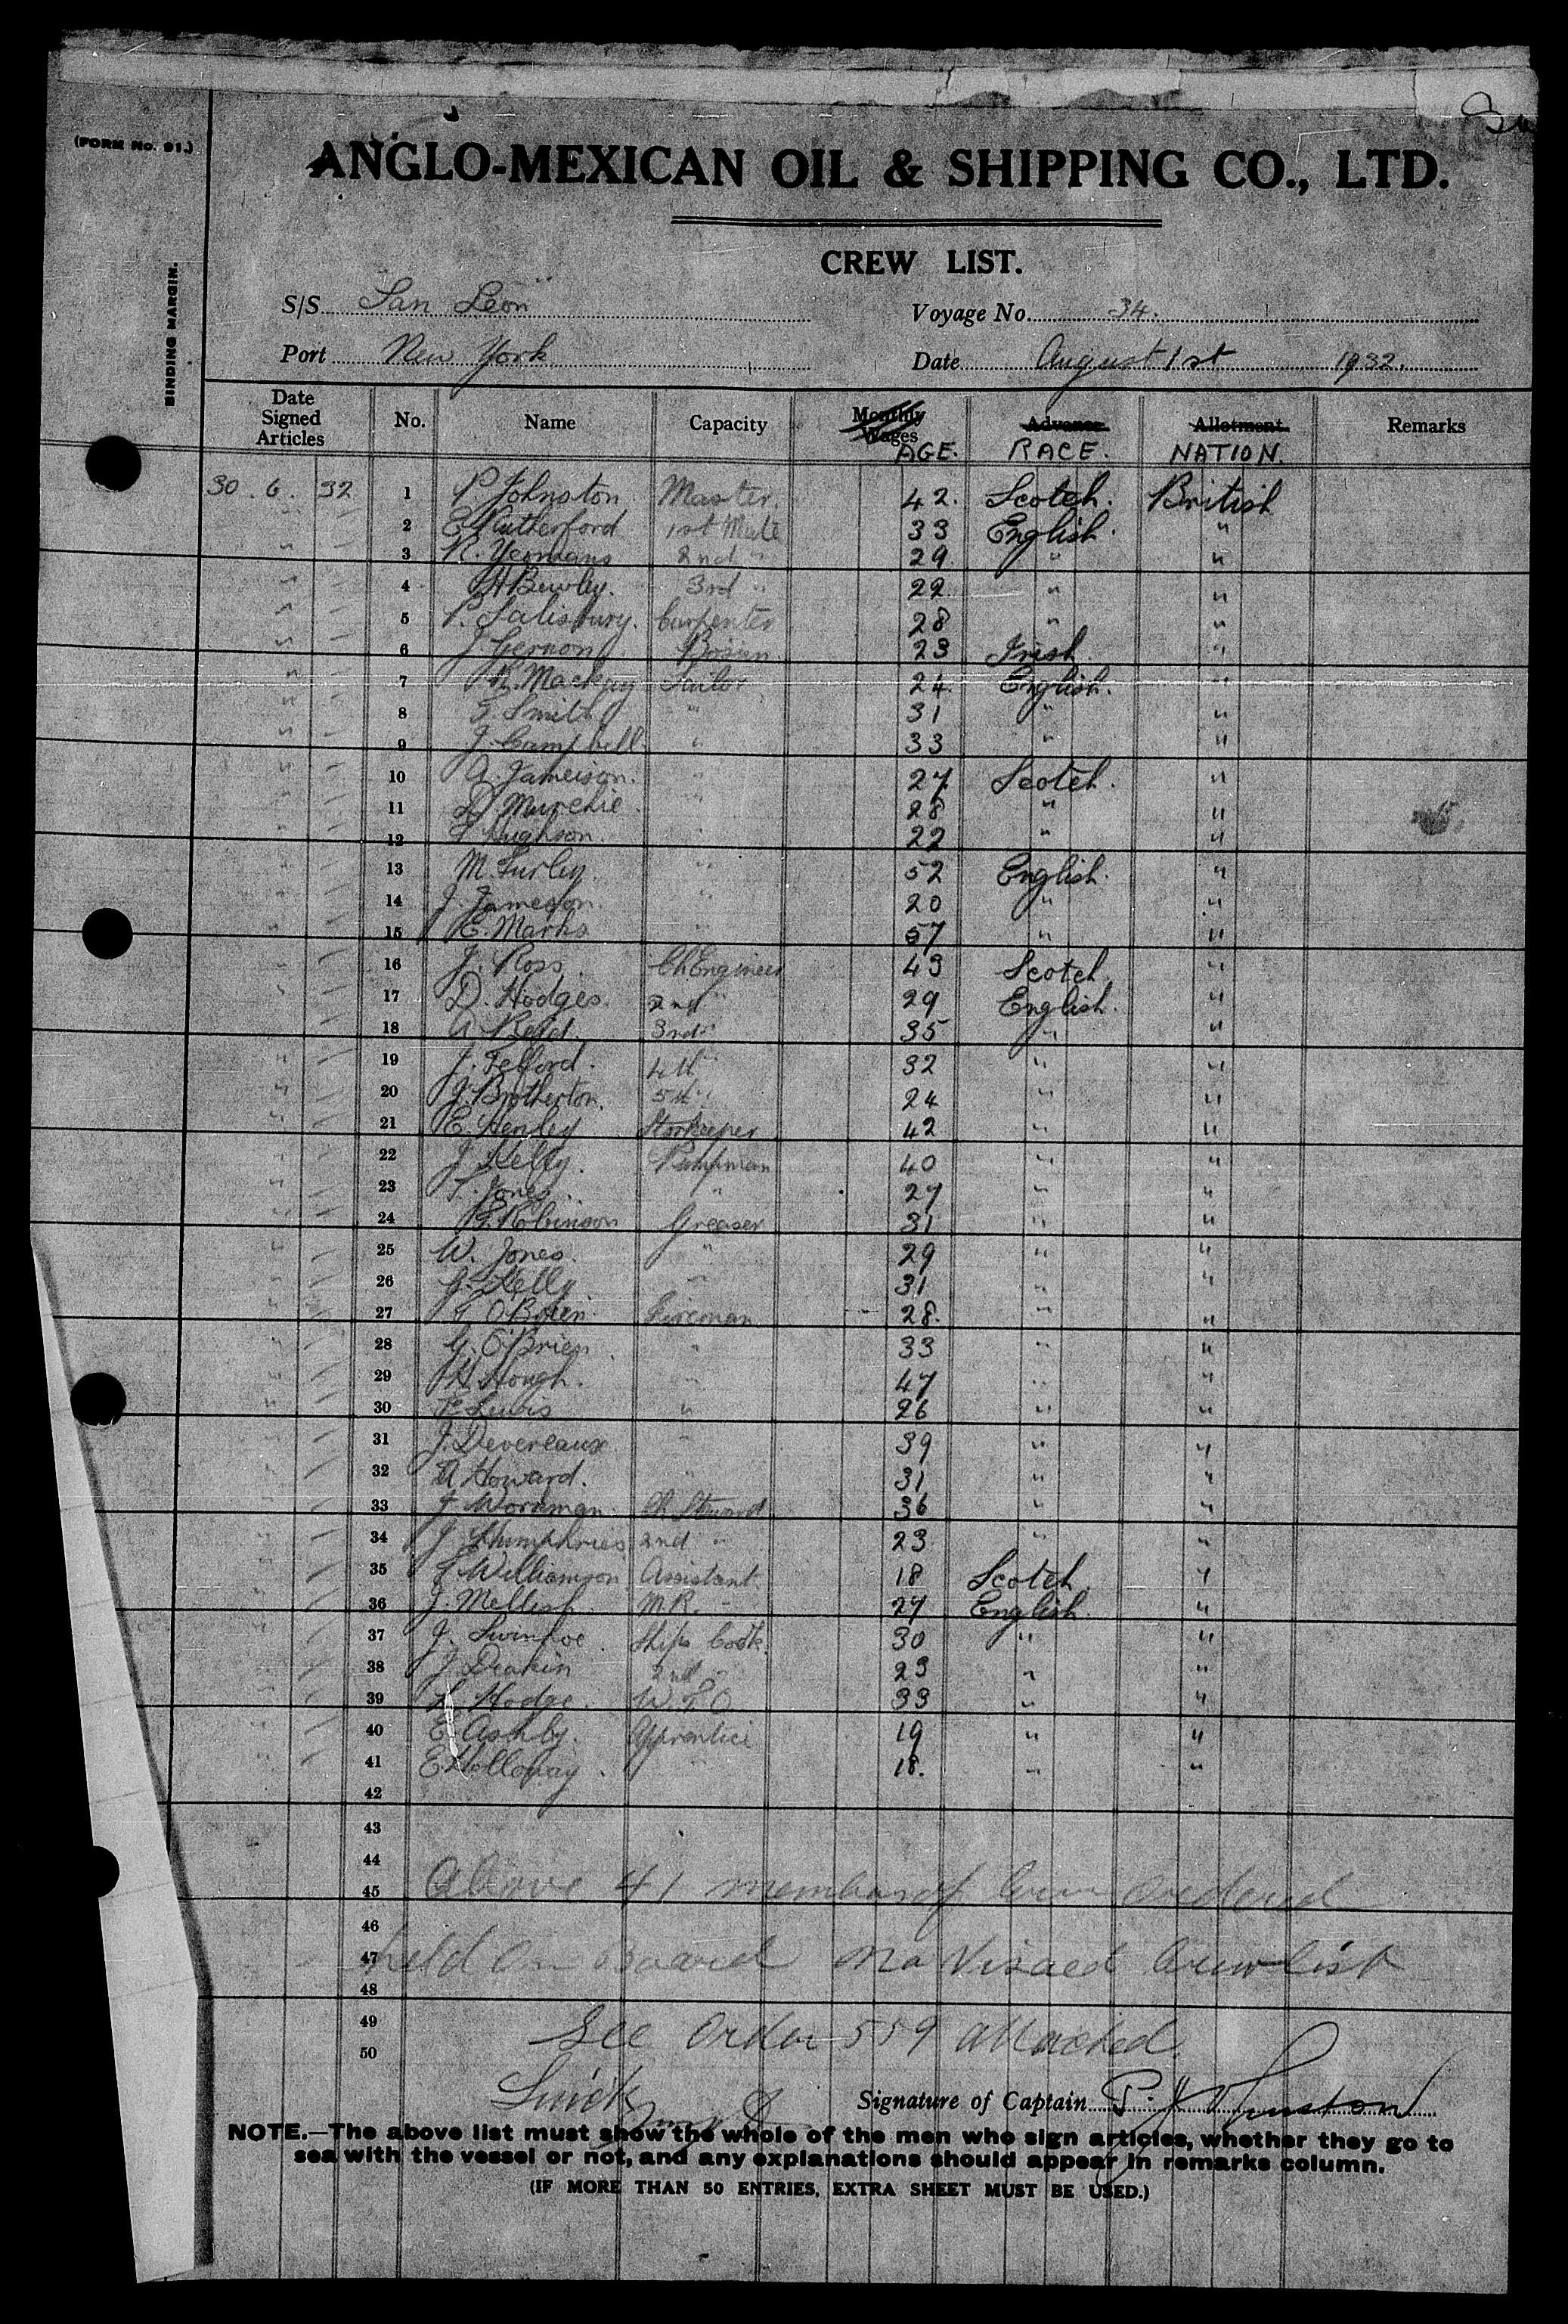 (FORM No. 91.)
BINDING MARGIN.
ANGLO-MEXICAN OIL & SHIPPING CO., LTD.
CREW LIST.
S/S "San Leon" Voyage No. 34.
Port New York Date August 1st 1932.
Date Signed Articles No. Name Capacity Monthly Wages AGE. Advance RACE. Allotment NATION. Remarks
30 . 6 . 32 1 P. Johnston Master. 42. Scotch. British
" 2 Rutherford 1st Mate 33 English. "
" 3 R. Yeomans 2nd " 29 " "
" 4 H Bewley. 3rd " 22 " "
" 5 P. Salisbury. Carpenter 28 " "
" 6 J Gernon Bosun. 23 Irish "
" 7 Mackay Sailor 24. English. "
" 8 Smith " 31 " "
" 9 J. Campbell " 33 " "
" 10 A. Jameison. " 27 Scotch. "
" 11 D. Murchie. " 28 " "
" 12 Hughson. " 22 " "
" 13 M. Furley. " 52 English. "
" 14 J. Jameson. " 20 " "
" 15 E. Marks " 57 " "
" 16 J. Ross. Ch Engineer 43 Scotch. "
" 17 D. Hodges. 2nd " 29 English. "
" 18 A. Reid. 3rd " 35 " "
" 19 J. Telford. 4th " 32 " "
" 20 J. Brotherton. 5th " 24 " "
" 21 E. Henley Storkeeper 42 " "
" 22 J. Kelly. Pumpman 40 " "
" 23 T. Jones " 27 " "
" 24 Robinson Greaser 31 " "
" 25 W. Jones. " 29 " "
" 26 J. Kelly " 31 " "
" 27 T O'Brien. Fireman 28. " "
" 28 G. O'Brien. " 33 " "
" 29 H. Hough. " 47 " "
" 30 F. Lewis " 26 " "
" 31 J. Devereaux " 39 " "
" 32 A Howard. " 31 " "
" 33 J Workman. Ch. Steward 36 " "
" 34 J Humphries 2nd " 23 " "
" 35 Williamson Assistant. 18 Scotch "
" 36 J. Mellish. M.R. " 27 English. "
" 37 J. Swinhoe. Ships Cook. 30 " "
" 38 J. Deakin 2nd " 23 " "
" 39 Hodge. W.T.O. 33 " "
" 40 E. Ashby. Apprentice 19 " "
" 41 E Holloway. " 18. " "
42
43
44
45 Above 41 members of Crew Ordered
46
47 held On Board no Visaed Crew list
48
49 See Order 559 attached.
50
Signature of Captain P. Johnston
NOTE.—The above list must show the whole of the men who sign articles, whether they go to
sea with the vessel or not, and any explanations should appear in remarks column.
(IF MORE THAN 50 ENTRIES, EXTRA SHEET MUST BE USED.)